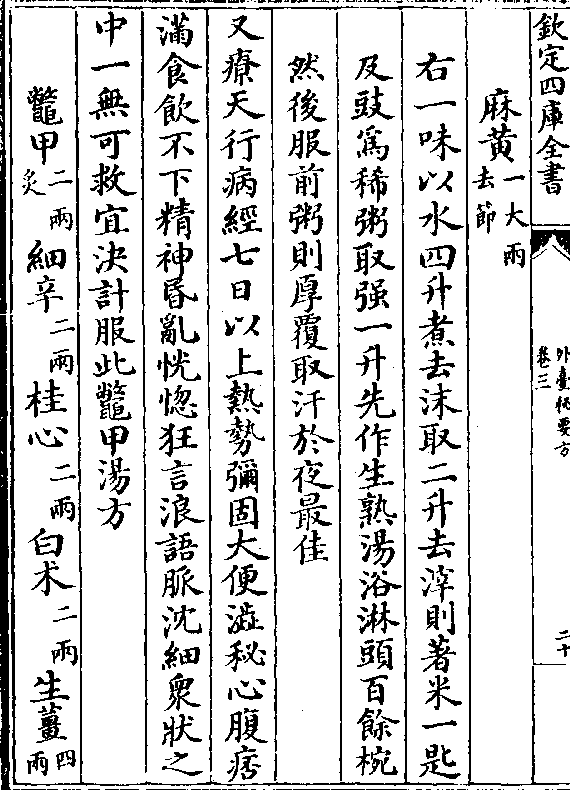 欽定四庫全書
外臺秘要方
卷三
二十
麻黄一大兩去節
右一味以水四升煮去沫取二升去滓則著米一匙
及豉為稀粥取强一升先作生熟湯浴淋頭百餘椀
然後服前粥則厚覆取汗於夜最佳
又療天行病經七日以上熱勢彌固大便澁秘心腹痞
滿食飲不下精神昏亂恍惚狂言浪語脈沈細衆狀之
中一無可救宜決計服此鼈甲湯方
鼈甲二兩炙細辛二兩桂心二兩白术二兩生薑四兩